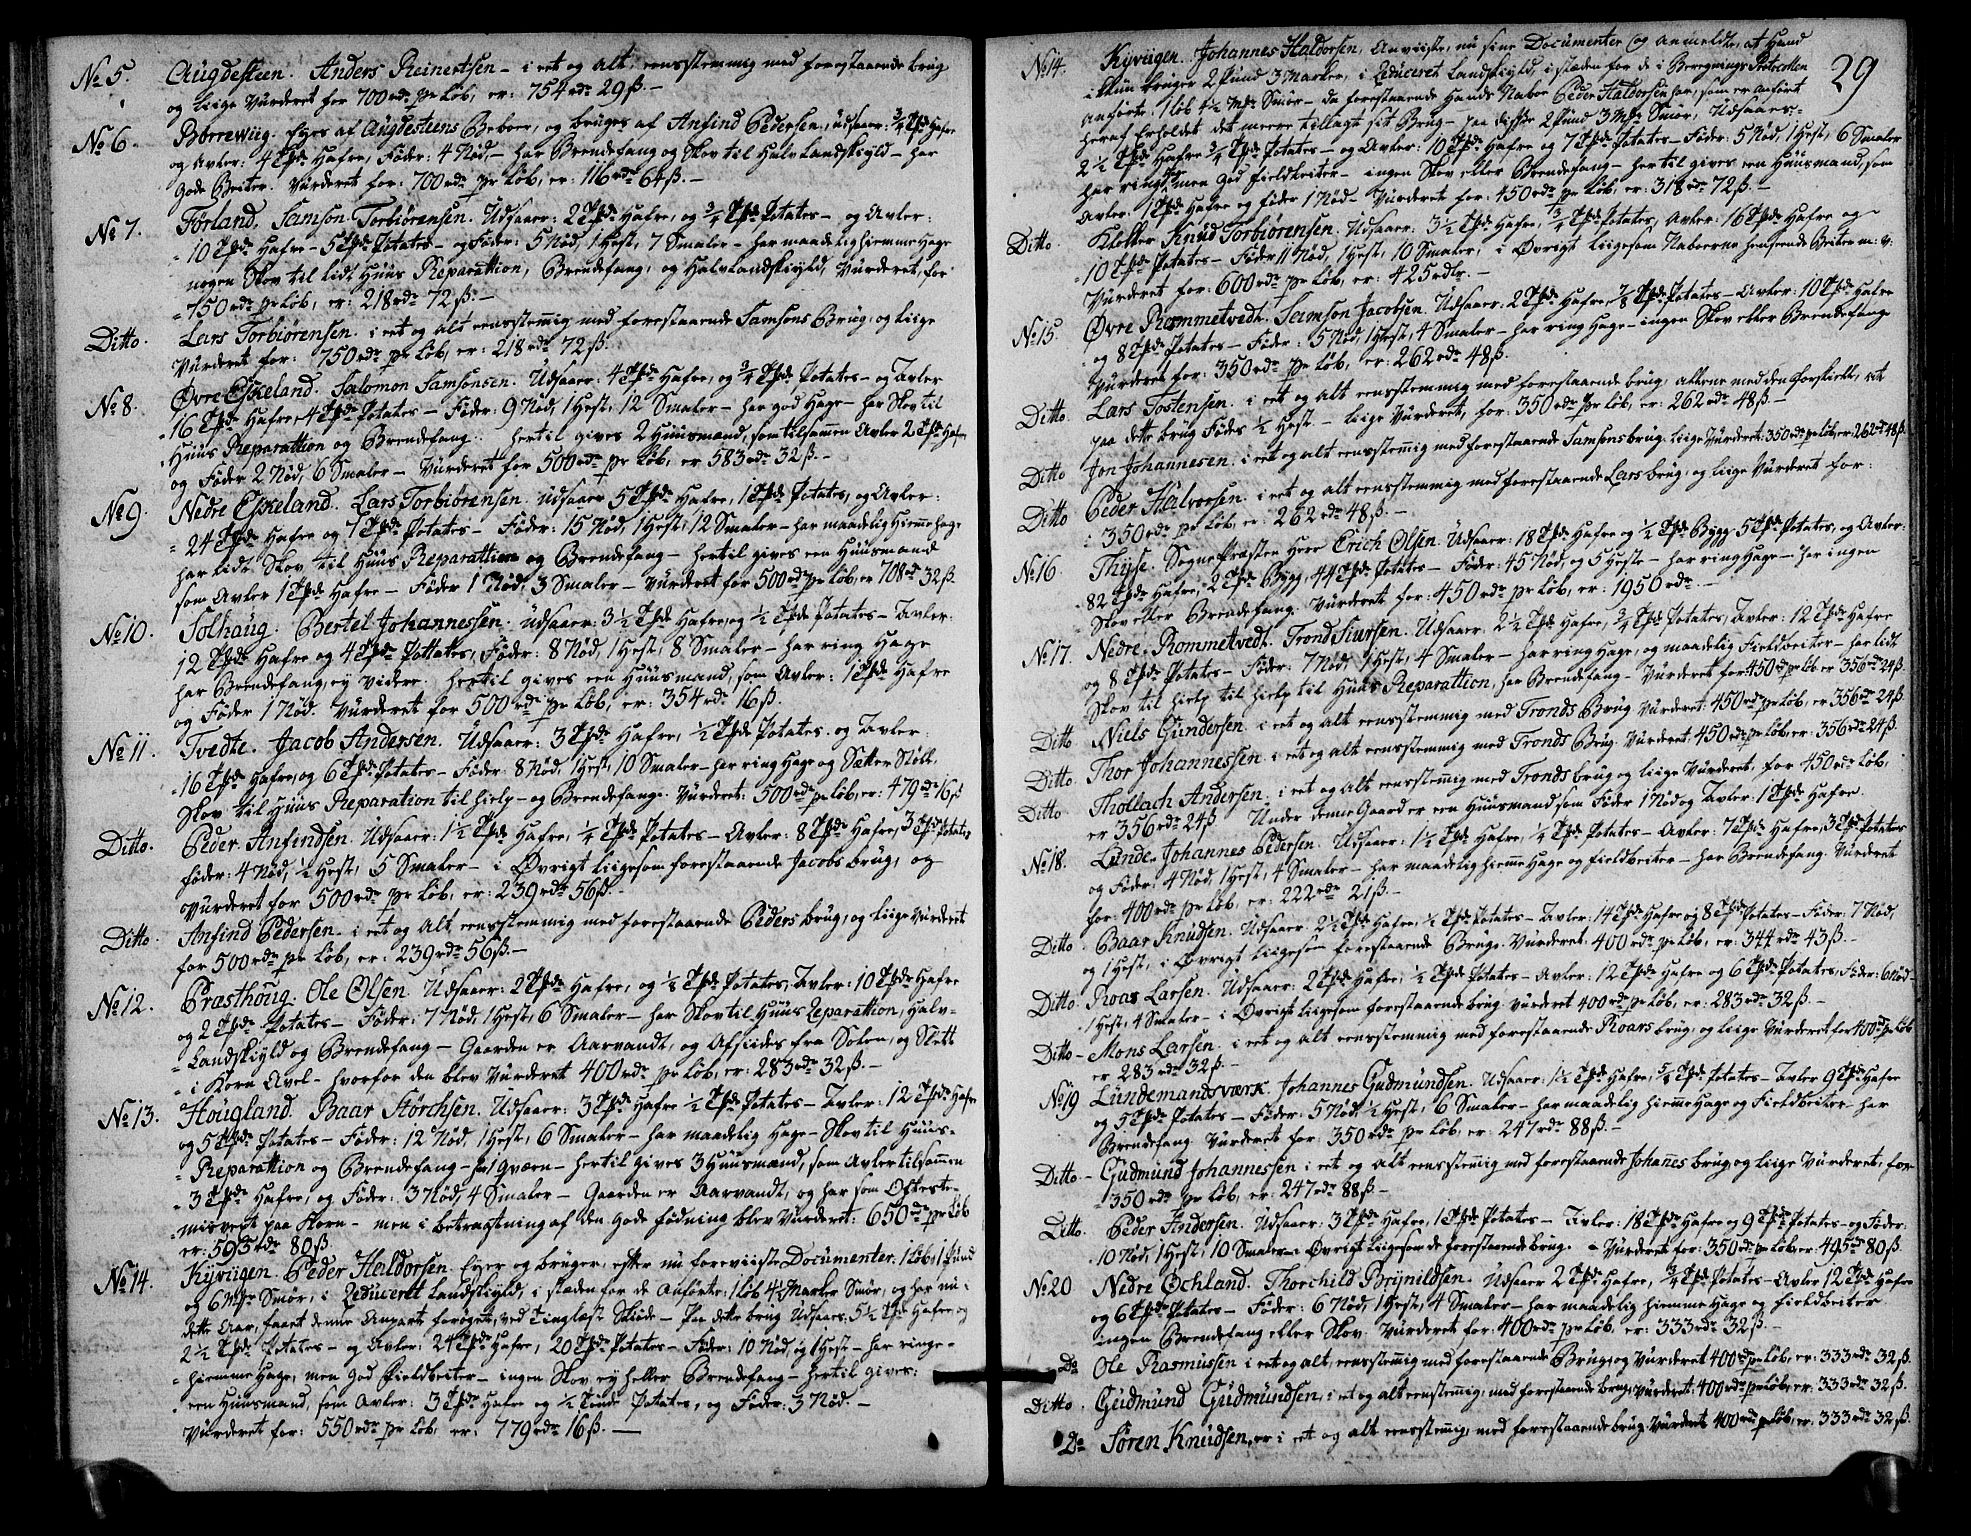 No 5. Augdesteen. Anders Reinertsen - i eet og alt, eensstemmig med forestaaende brug
og liige Vurderet for 700 rdr pr Løb, er: 754 rdr 29 ß. -
No 6. Borrewiig. Ejes af Augdesteens Beboer, og bruges af Anfind Pedersen, udsaaer: 3/4 Tpde Hafre
og Avler: 4 Tpde Hafre, Føder: 4 Nød, - har Brendefang og Skov til Halv Landskyld - har
gode Beiter. Vurderet for: 700 rdr pr Løb, er: 116 rdr 64 ß. -
No 7. Førland. Samson Torbiørensen. Udsaaer: 2 Tpde Hafre, og 3/4 Tpde Potates - og Avler:
10 Tpde Hafre - 5 Tpde Potates - og Føder: 5 Nød, 1 Hest, 7 Smaler - har maadelig hiemme Hage
nogen Skov til lidt Huus Reparattion, Brendefang, og Halv Landskyld, Vurderet, for
750 rdr pr Løb, er: 218 rdr 72 ß. -
Ditto. Lars Torbiørensen. i eet og alt eensstemig med forestaaende Samsons Brug, og liige
Vurderet for: 750 rdr pr Løb, er: 218 rdr 72 ß.
No 8. Øvre Eskeland. Salomon Samsonsen. Udsaaer: 4 Tpde Hafre, og 3/4 Tpde Potates - og Avler
16 Tpde Hafre, 4 Tpde Potates - Føder: 9 Nød, 1 Hest, 12 Smaler - har god Hage - har Skov til
Huus Reparattion og Brendefang. hertil gives 2 Huusmænd, som tilsammen Avler 2 Tpde Hafre
og Føder 2 Nød, 6 Smaler - Vurderet for 500 rdr pr Løb, er 583 rdr 32 ß. -
No 9. Nedre Eskeland. Lars Torbiørensen. Udsaaer 5 Tpde Hafre, 1 Tpde Potates, og Avler:
24 Tpde Hafre og 7 Tpde Potates - Føder: 15 Nød, 1 Hest, 12 Smaler - har maadelig Hiemme hage
har lidt Skov til Huus Reparattion og Brendefang - hertil gives een Huusmand
som Avler 1 Tpde Hafre - Føder 1 Nød, 3 Smaler - Vurderet for 500 rdr pr Løb, er 708 rdr 32 ß.
No 10. Solhaug. Bertel Johannessen. udsaaer: 3 1/2 Tpde Hafre, og 1/2 Tpde Potates - Avler:
12 Tpde Hafre og 4 Tpde Pottates, Føder: 8 Nød, 1 Hest, 8 Smaler - har ring Hage
har Brendefang, ey videre. hertil gives een Huusmand, som Avler: 1 Tpde Hafre
og Føder 1 Nød. Vurderet for 500 rdr pr Løb, er: 354 rdr 16 ß.
No 11. Tvedte. Jacob Andersen. Udsaaer: 3 Tpde Hafre, 1/2 Tpde Potates. og Avler:
16 Tpde Hafre, og 6 Tpde Potates - Føder: 8 Nød, 1 Hest, 10 Smaler - har ring Hage og Sætter Støll,
Skov til Huus Reparation til hielp - og Brendefang. Vurderet: 500 rdr pr Løb, er: 479 rdr 16 ß
Ditto. Peder Anfindsen. Udsaaer: 1 1/2 Tpde Hafre, 1/4 Tpde Potates - Avler: 8 Tpde Hafre, 3 Tpde Potates
føder: 4 Nød, 1/2 Hest, 5 Smaler - i Øvrigt liigesom forestaaende Jacobs brug, og
Vurderet for 500 rdr pr Løb, er: 239 rdr 56 ß. -
Ditto. Anfind Pedersen. i eet og alt eensstemmig med forestaaende Peders brug, og liige Vurderet
for 500 rdr pr Løb, er: 239 rdr 56 ß. -
No 12. Præsthoug. Ole Olsen. Udsaaer: 2 Tpde Hafre, og 1/8 Tpde Potates, Avler: 10 Tpde Hafre
og 2 Tpde Potates - Føder: 7 Nød, 1 Hest, 6 Smaler - har Skov til Huus Reparattion, Halv-
Landskyld og Brendefang - Gaarden er Aarvandt, og Afsiides fra Solen, og Slett
i Korn Avel - hvorfor den blev Vurderet 400 rdr pr Løb, er: 283 rdr 32 ß. -
No 13. Hougland. Baar Størchsen. Udsaaer: 3 Tpde Hafre 1/2 Tpde Potates - Avler: 12 Tpde Hafre
og 5 Tpde Potates - Føder: 12 Nød, 1 Hest, 6 Smaler - har maadelig Hage - Skov til Huus-
Reparattion og Brendefang - har 1 Qværn - hertil gives 3 Huusmænd, som Avler tilsammen
3 Tpde Hafre, og Føder: 3 Nød, 4 Smaler - Gaarden er Aarvandt, og har som Oftest-
misvext paa Korn - men i betragtning af den gode fødning blev Vurderet: 650 rdr pr Løb
er: 595 rdr 80 ß.
No 14. Kyviigen. Peder Haldorsen. Ejer og bruger, efter nu foreviiste Documenter, 1 Løb, 1 Pund
og 6 Mrk Smør, i Reduceret Landskyld, i stæden for de Anførte: 1 Løb 4 1/2 Marker Smør, og har nu i
dette Aar, faaet denne Anpart forøget, ved tinglæst Skiøde - Paa dette brug Udsaaer: 5 1/2 Tpde Hafre, og
2 1/2 Tpde Potates - og Avler: 24 Tpde Hafre, 20 Tpde Potates - Føder: 10 Nød, og 1 Hest - har ringe-
hiemme Hage, men god Fieldbeiter - ingen Skov ey heller Brendefang - hertil gives:
een Huusmand, som Avler: 3 Tpde Hafre og 1/2 Tønde Potates, og Føder: 3 Nød. -
Vurderet for: 550 rdr pr Løb, er: 779 rdr 16 ß. -
29
No 14. Kyviigen. Johannes Haldorsen, Anviiste, nu sine Documenter og anmeldte, at Hand
ikkun bruger 2 Pund 3 Marker, i Reduceret Landskyld, i stæden for de i Beregnings Protocollen
anførte, 1 Løb 4 1/2 Mrk Smør - da forestaaende Hands Nabor Peder Haldorsen har, som er Anført
heraf Erholdet det meere tillagt sit Brug - paa disse 2 Pund 3 Mrk Smør, Udsaaes:
2 1/2 Tpde Hafre 3/4 Tpde Potates - og Avler: 10 Tpde Hafre og 7 Tpde Potates - Føder: 5 Nød 1 Hest, 6 Smaler
har ring men god fieldbeiter - ingen Skov eller Brendefang - hertil gives een Huusmand, som
Avler: 1 Tpde Hafre og føder 1 Nød - Vurderet for: 450 rdr pr Løb, er: 318 rdr 72 ß. -
Ditto. Kletter Knud Torbiørensen. Udsaaer: 3 1/2 Tpde Hafre, 3/4 Tpde Potates, Avler: 16 Tpde Hafre og
10 Tpde Potates - Føder 11 Nød, 1 Hest, 10 Smaler, i Øvrigt liigesom Naboerne henseende Beiter m: v:
Vurderet for: 600 rdr pr Løb, er: 425 rdlr. -
No 15. Øvre Rommetvedt. Samson Jacobsen. Udsaaer: 2 Tpde Hafre, 7/8 Tpde Potates - Avler: 10 Tpde Hafre
og 8 Tpde Potates - Føder: 5 Nød, 1 Hest, 4 Smaler - har ring Hage - ingen Skov eller Brendefang
Vurderet for: 350 rdr pr Løb, er: 262 rdr 48 ß.
Ditto Lars Tostensen. i eet og alt eensstemmig med forestaaende brug, allene med den forskiell, at
paa dette brug Fødes 1/2 Hest. - liige Vurderet, for: 350 rdr pr Løb, er: 262 rdr 48 ß. -
Ditto Jon Johannesen. i eet og alt eensstemig med forestaaende Samsons brug, liige Vurderet: 350 rdr pr Løb, er: 262 rdr 48 ß.
Ditto Peder Halvorsen. i eet og alt eensstemmig med forestaaende Lars brug, og liige Vurderet for:
350 rdr pr Løb, er: 262 rdr 48 ß. -
No 16. Thysse. Sognepræsten Herr Erich Olsen. Udsaaer: 18 Tpde Hafre og 1/2 Tpde Bygg, 5 Tpde Potates, og Avler:
82 Tpde Hafre, 2 Tpde Bygg, 44 Tpde Potates - Føder: 45 Nød, og 5 Heste - har ring Hage - har ingen
Skov eller Brendefang. Vurderet for: 450 rdr pr Løb, er: 1950 rdr. -
No 17. Nedre Rommetvedt. Trond Siursen. Udsaaer: 2 1/2 Tpde Hafre, 3/4 Tpde Potates, Avler: 12 Tpde Hafre
og 8 Tpde Potates - Føder: 7 Nød, 1 Hest, 4 Smaler - har ring Hage, og maadelig Fieldbeiter - har lidt
Skov til hielp til hielp til Huus Reparattion, har Brendefang - Vurderet for: 450 rdr pr Løb er 356 rdr 24 ß.
Ditto. Niels Gundersen. i eet og alt eensstemmig med Tronds Brug. Vurderet: 450 rdr pr Løb, er 356 rdr 24 ß
Ditto. Thor Johannessen. i eet og alt eensstemmig med Tronds Brug. Vurderet: 450 rdr pr Løb, er: 356 rdr 24 ß.
Ditto Thollach Andersen. i eet og alt eensstemig med Tronds brug og liige Vurderet. for 450 rdr Løb,
er 356 rdr 24 ß. Under denne Gaard er een Huusmand som Føder 1 Nød og Avler: 1 Tpde Hafre.
No 18. Lunde. Johannes Pedersen. Udsaaer: 1 1/2 Tpde Hafre, 1/4 Tpde Potates - Avler: 7 Tpde Hafre, 3 Tpde Potates
og Føder: 4 Nød, 1 Hest, 4 Smaler - har maadelig hiemme Hage og fieldbeiter - har Brendefang. Vurderet
for: 400 rdr pr Løb, er: 222 rdr 21 ß. -
Ditto. Baar Knudsen. Udsaaer: 2 1/2 Tpde Hafre, 1/2 Tpde Potates - Avler: 14 Tpde Hafre og 8 Tpde Potates - Føder: 7 Nød,
og 1 Hest, i Øvrigt liigesom forestaaende Brug. Vurderet: 400 rdr pr Løb, er: 344 rdr 43 ß. -
Ditto. Roar Larsen. Udsaaer: 2 Tpde Hafre, 1/2 Tpde Potates - Avler: 12 Tpde Hafre og 6 Tpde Potates, Føder: 6 Nød
1 Hest, 4 Smaler - i Øvrigt liigesom forestaaende brug Vurderet 400 rdr pr Løb, er: 283 rdr 32 ß. -
Ditto - Mons Larsen. i eet og alt eensstemmig med forestaaende Roars brug, og liige Vurderet for 400 rdr pr Løb
er 283 rdr 32 ß. -
No 19 Lundemandsværk. Johannes Gudmundsen. Udsaaer: 1 1/2 Tpde Hafre, 3/8 Tpde Potates - Avler 9 Tpde Hafre
og 5 Tpde Potates - Føder: 5 Nød, 1/2 Hest, 6 Smaler - har maadelig hiemme Hage og Fieldbeiter - har
Brendefang Vurderet for: 350 rdr pr Løb, er: 247 rdr 88 ß. -
Ditto - Gudmund Johannessen i eet og alt eensstemig med forestaaende Johannes brug og liige Vurderet, for
350 rdr pr Løb, er: 247 rdr 88 ß -
Ditto. Peder Andersen. Udsaaer: 3 Tpde Hafre, 1 Tpde Potates - Avler: 18 Tpde Hafre og 9 Tpde Potates - og Føder:
10 Nød, 1 Hest, 10 Smaler - i Øvrigt liigesom de forestaaende brug. - Vurderet for: 350 rdr pr Løb, er: 495 rdr 80 ß.
No 20 Nedre Ochland. Thorchild Brynildsen. Udsaaer 2 Tpde Hafre, 3/4 Tpde Potates - Avler 12 Tpde Hafre
og 6 Tpde Potates - Føder: 6 Nød, 1 Hest, 4 Smaler - har maadelig hiemme Hage og fieldbeiter
ingen Brendefang eller Skov. Vurderet for: 400 rdr pr Løb, er: 333 rdr 32 ß. -
Do Ole Rasmussen i eet og alt, eensstemmig med forestaaende Brug, og Vurderet 400 rdr pr Løb, er: 333 rdr 32 ß.
Ditto. Gudmund Gudmundsen, i eet og alt eensstemig, med forestaaende brug, Vurderet: 400 rdr pr Løb, er: 333 rdr 32 ß.
Do Søren Knudsen, er i eet og alt eensstemmig, med forestaaende brug. Vurderet 400 rdr pr Løb, er: 333 rdr 32 ß.